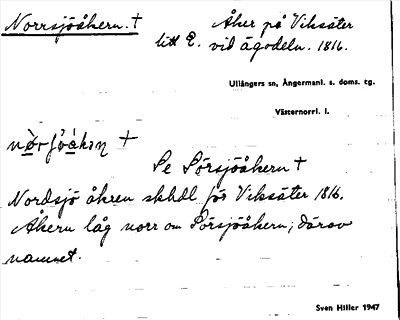 Norrsjöåkern. † Åker på Viksäter
litt E. vid ägodeln. 1816.
Ullångers sn, Ångermanl. s. doms. tg.
Västernorrl. l.
Se Sörsjöåkern †
Nordsjö åkren skhdl för Viksäter 1816.
Åkern låg norr om Sörsjöåkern; därav
namnet.
Sven Hiller 1947